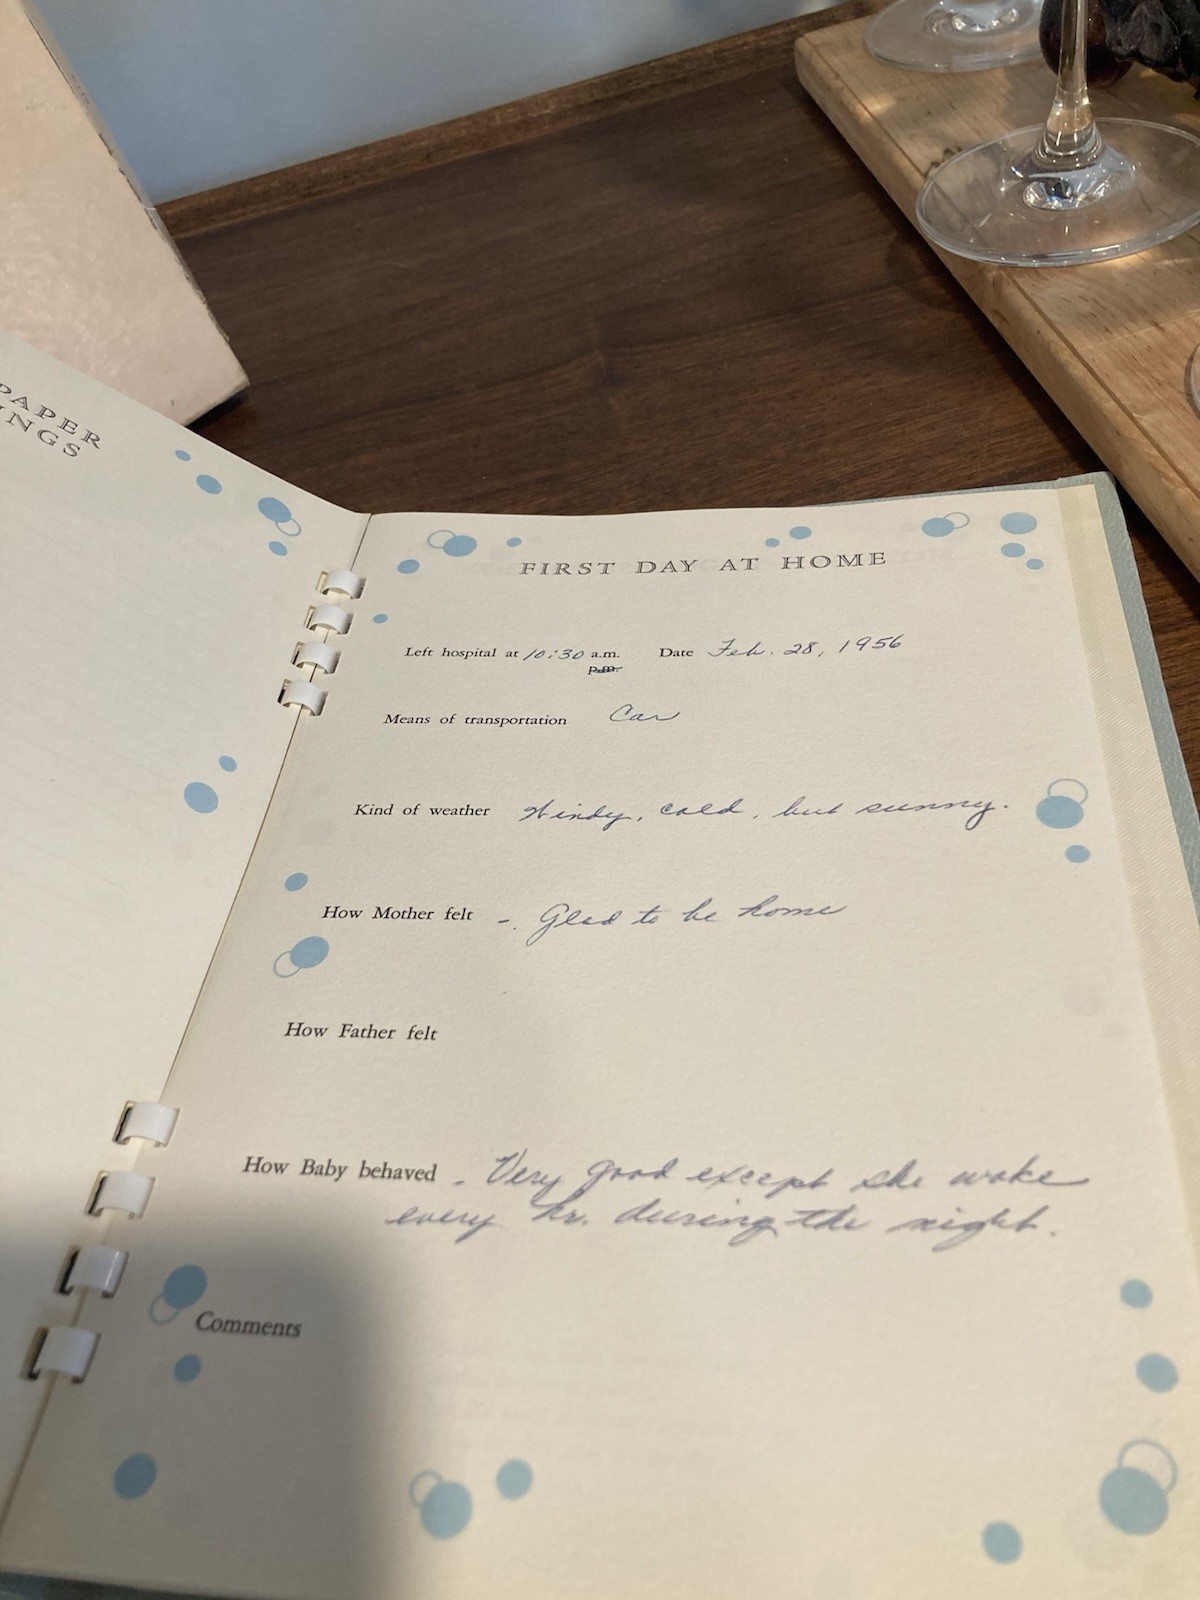 PAPER
INGS
FIRST DAY AT HOME
Left hospital at 10:30 a.m. Date Feb. 28, 1956
p.m.
Means of transportation Car
Kind of weather Windy, cold, but sunny.
How Mother felt - Glad to be home
How Father felt
How Baby behaved - Very good except she woke
every hr. during the night.
Comments